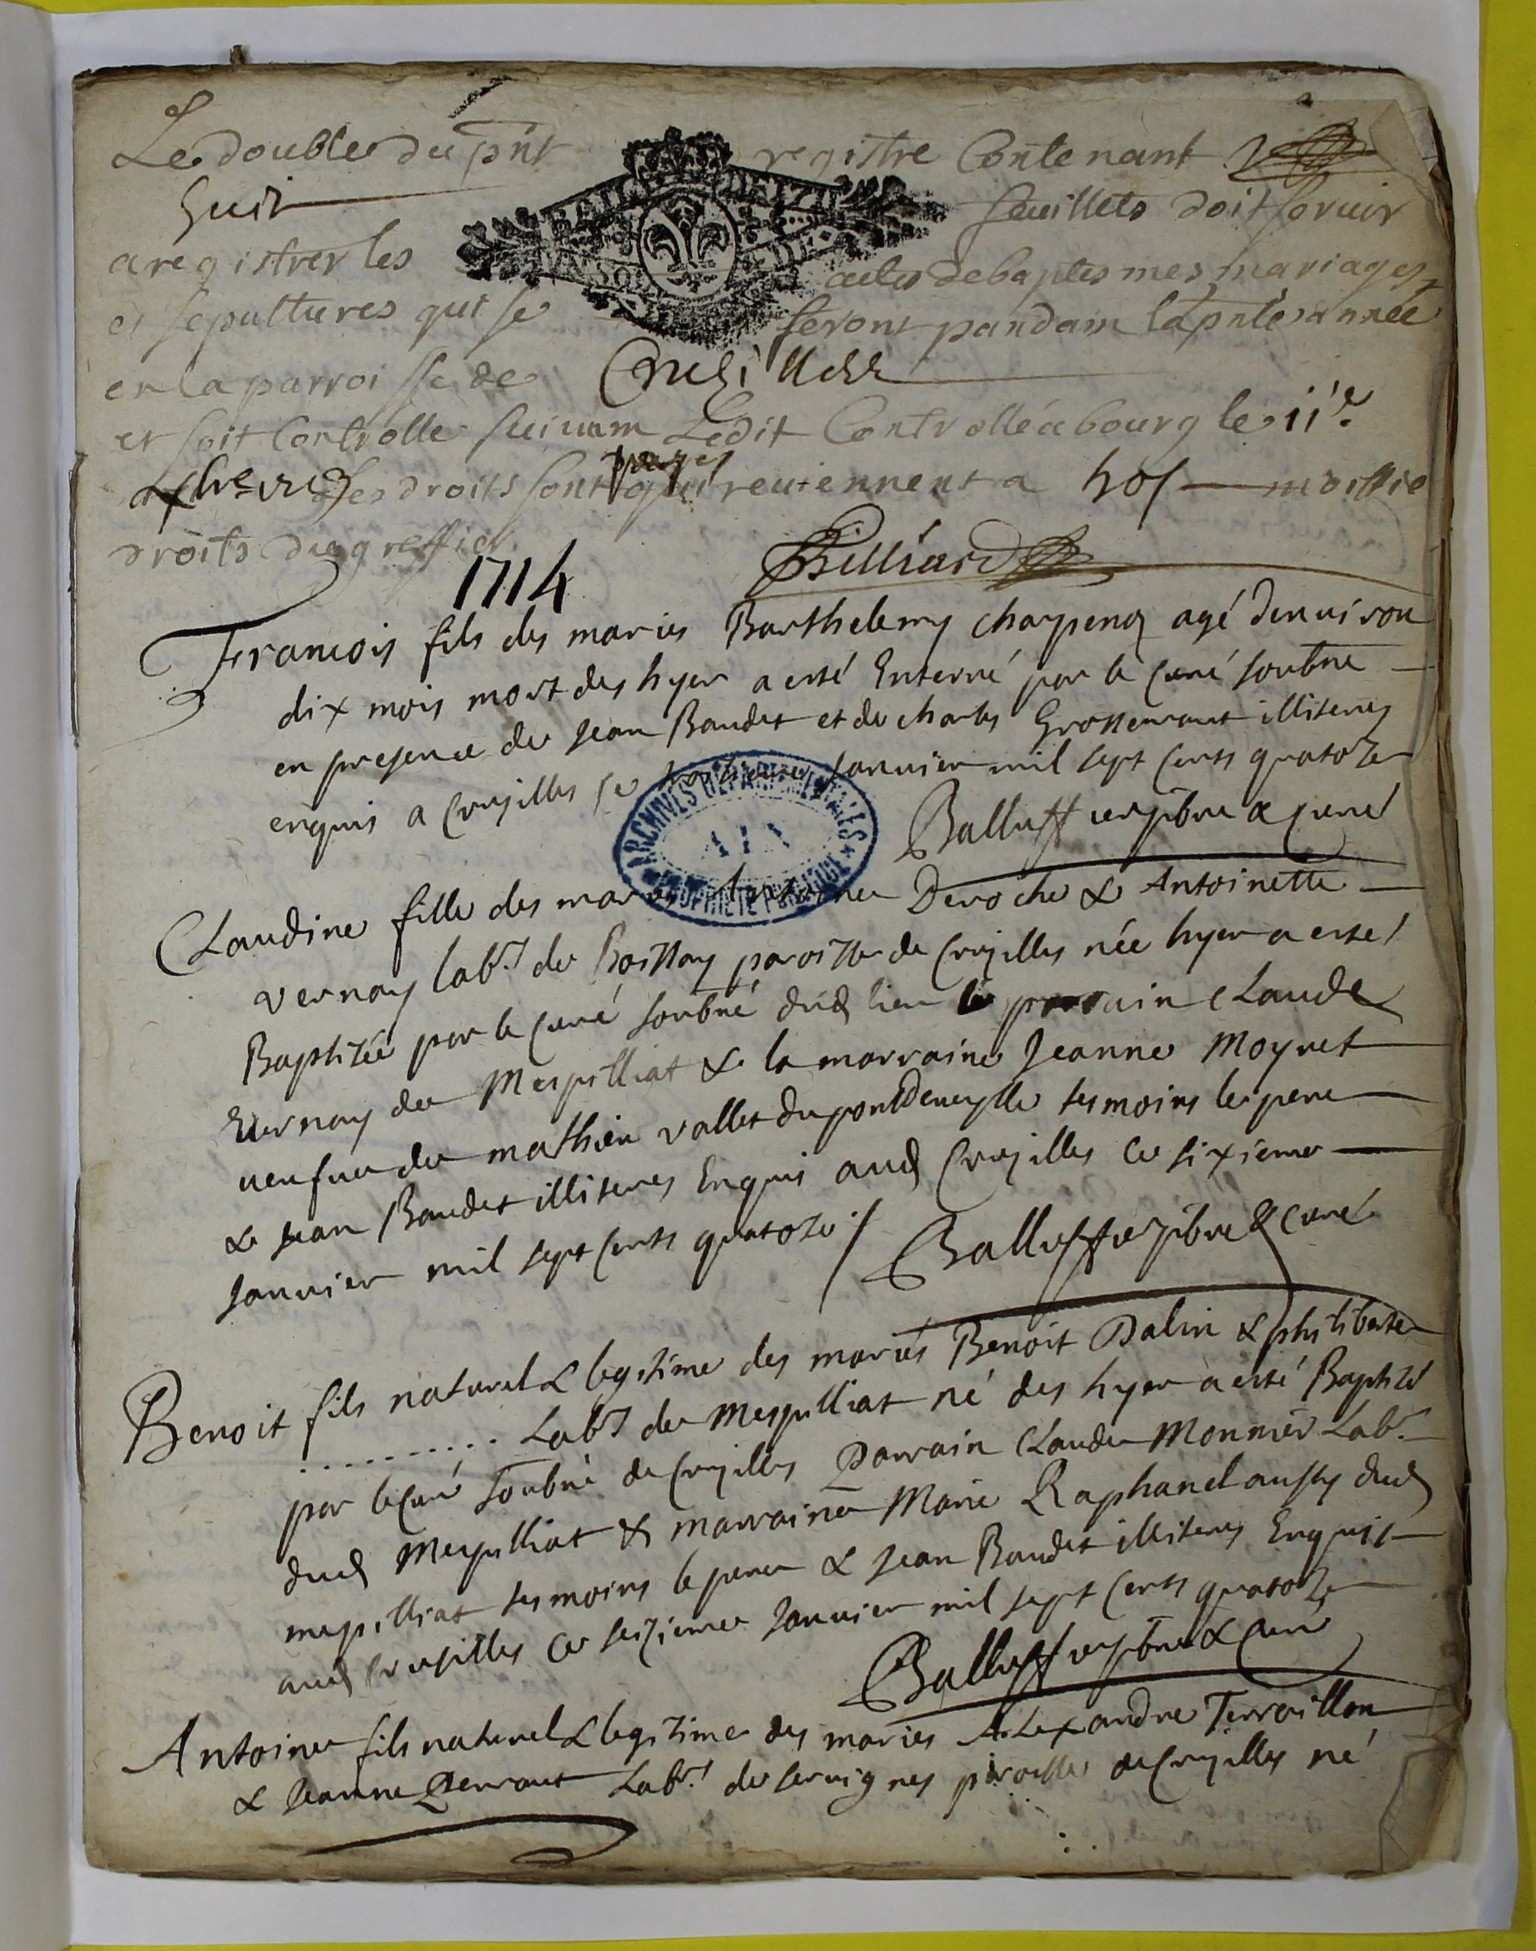 Le double du pnt registre Contenant
huit feuillets doit servir
a registrer les actes de baptesmes, mariages
et sepultures qui se feront pandam la pnte année
en la parroisse de Cruzilles
et soit Controlle suivam Ledit Controllé a bourg le 11e
Les droits sont payes qui reviennent a moittie
droits du greffier
Billiard
1714
Francois fils des maries Barthelemy Charpenay agé denviron
dix mois mort des hyer a esté Enterré par le Curé soubné
en presence de Jean Baudet et de charles illiteres
enquis a Crusilles ce Janvier mil sept cents quatorze
Balluffier pbre & Curé
ARCHIVES DÉPARTEMENTALES
AIN
PROPRIÉTÉ PUBLIQUE
Claudine fille des mariés Deroche & Antoinette
Vernay labrs de Boissay paroisse de Crusilles née hyer a esté
Baptizée par le Curé soubné dud lieu le parrain Claude
Vernay de Mespilliat & la marraine Jeanne Moyret
veufve de Mathieu Vallet du pont Deveylle tesmoins le pere
& Jean Baudet illiteres Enquis aud Crusilles ce sixieme
Janvier mil sept cents quatorze
Balluffier pbre & Curé
Benoit fils naturel & legitime des mariés Benoit Dalin & philiberte
.......... Labrs de Mespilliat né des hyer a esté Baptizé
par le Curé soubné de Crusilles Parrain Claude Monnier Labr
dud Mespilliat & marraine Marie Raphanel aussy dud
mespilliat tesmoins le pere & Jean Baudet illiteres Enquis
aud Crusilles ce seizieme Janvier mil sept cents quatorze
Balluffier pbre & Curé
Antoine fils naturel & legitime des mariés Alexandre Terraillon
& Jeanne Perraut Labrs de servignes paroisse de Crusilles né